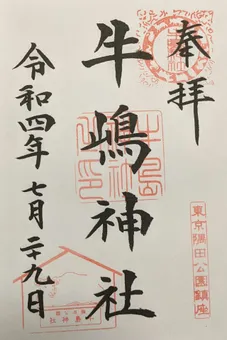 奉拝
東京隅田公園鎮座
牛嶋神社
令和四年七月二十九日